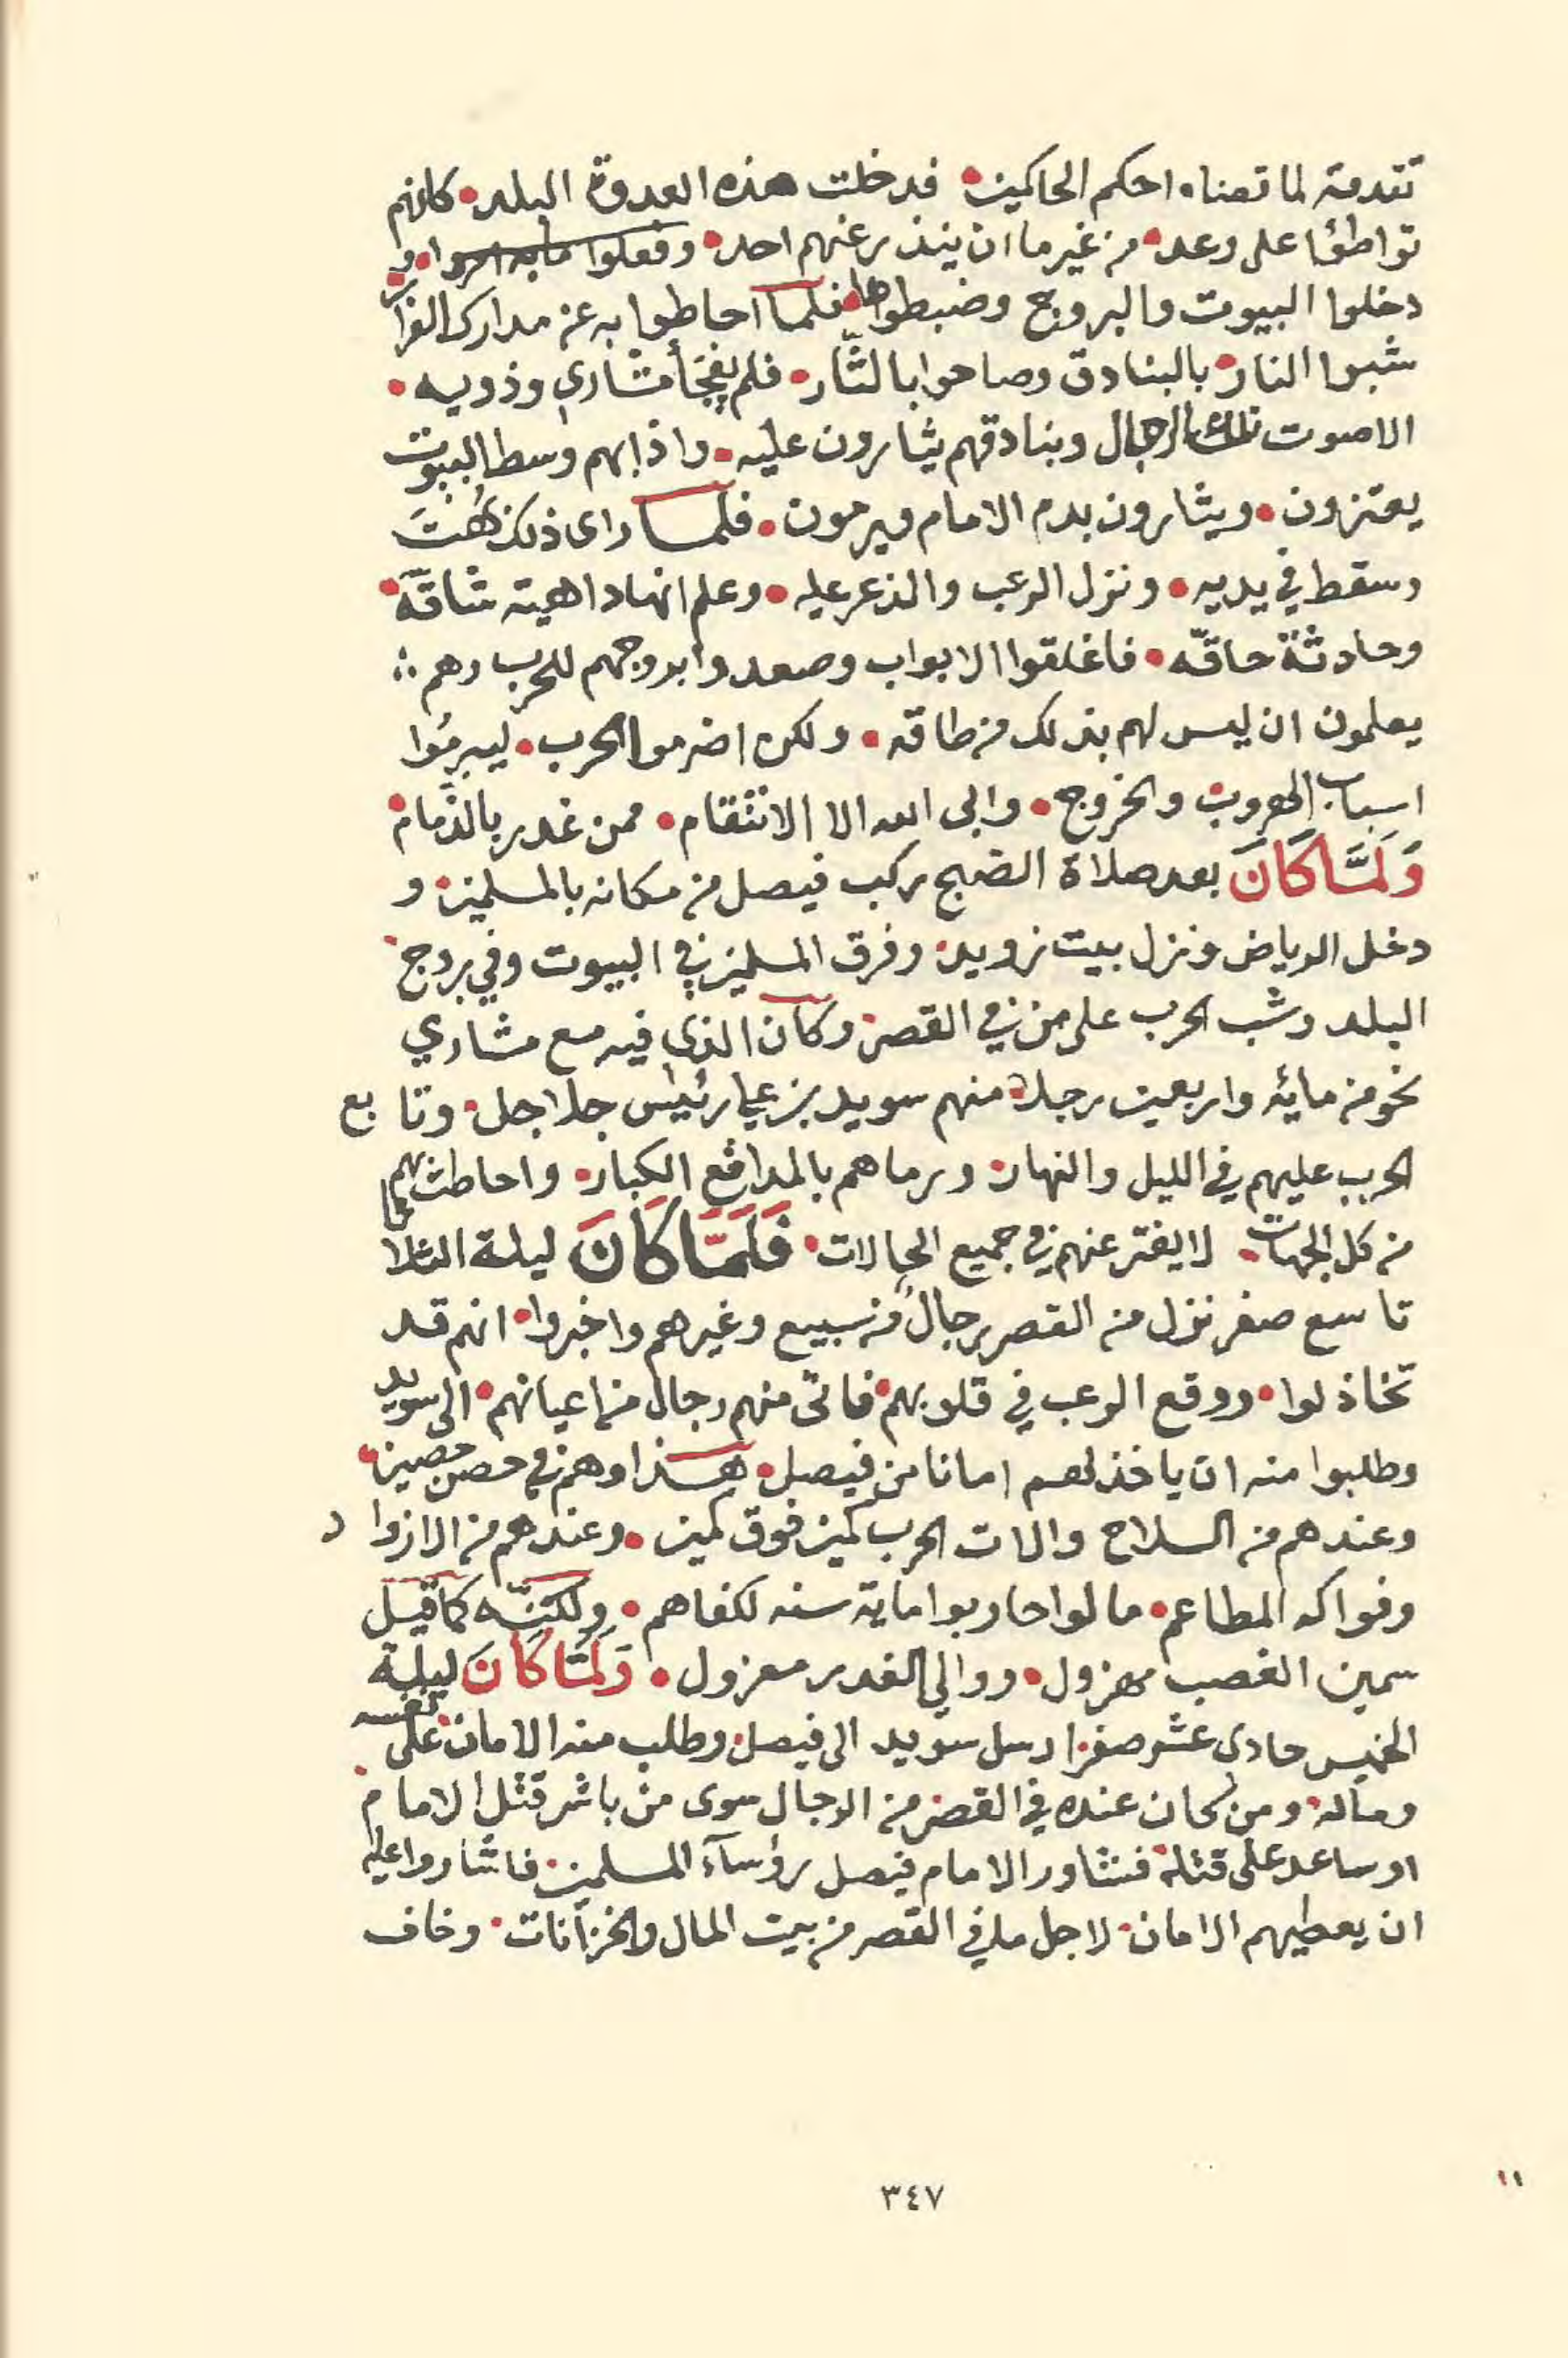 تقدمة لما قضاه احكم الحاكمين • فدخلت هذه العدوة البلد • كانهم
تواطؤا على وعد • من غير ما ان ينذر عنهم احد • وفعلوا ما به امروا • و
دخلوا البيوت والبروج وضبطوها • فلما احاطوا به عن مدارك الفرار
شبوا النار • بالبنادق وصاحوا بالثّار • فلم يفجَأ مشاري وذويه •
الا صوت تلك الرجال وبنادقهم يثارون عليه • واذا بهم وسط البيوت
يعتزون • ويثارون بدم الامام ويرمون • فلما راى ذلك بُهت
وسقط في يديه • ونزل الرعب والذعر عليه • وعلم انها داهية شاقّة •
وحادثة حاقّه • فاغلقوا الابواب وصعدوا بروجهم للحرب وهم
يعلمون ان ليس لهم بذلك من طاقه • ولكن اضرموا الحرب • ليبرمُوا
اسباب الهروب والخروج • وابى الله الا الانتقام • ممن غدر بالذّمام •
وَلَمَّا كَانَ بعد صلاة الصبح ركب فيصل من مكانه بالمسلمين • و
دخل الرياض ونزل بيت زويد • وفرق المسلمين في البيوت وفي بروج •
البلد وشب الحرب على من في القصر • وكان الذي فيه مع مشاري
نحو من مائه واربعين رجلا • منهم سويد بن علي رئيس جلاجل • وتابع
الحرب عليهم في الليل والنهار • ورماهم بالمدافع الكبار • واحاطت بهم
من كل الجهات • لا يفتر عنهم في جميع الحالات • فَلَمَّا كَانَ ليلة الثلاثا
تاسع صفر نزل من القصر رجال من سبيع وغيرهم واخبروا • انهم قد
تخاذلوا • ووقع الرعب في قلوبهم • فاتى منهم رجال من اعيانهم • الى سويد
وطلبوا منه ان ياخذ لهم امانا من فيصل • هذا وهم في حصن حصين •
وعندهم من السلاح والات الحرب كمين فوق كمين • وعندهم من الازواد
وفواكه المطاعم • ما لو احاربوا ماية سنه لكفاهم • ولكنّه كما قيل
سمين الغصب مهزول • ووالي الغدر معزول • وَلَمَّا كَانَ ليلة
الخميس حادى عشر صفر • ارسل سويد الى فيصل • وطلب منه الامان • على نفسه
وماله • ومن كان عنده في القصر من الرجال سوى من باشر قتل الامام •
او ساعد على قتله • فشاور الامام فيصل رؤسآء المسلمين • فاشاروا عليه
ان يعطيهم الامان • لاجل ما في القصر من بيت المال والخزانات • وخاف
٣٤٧
١١